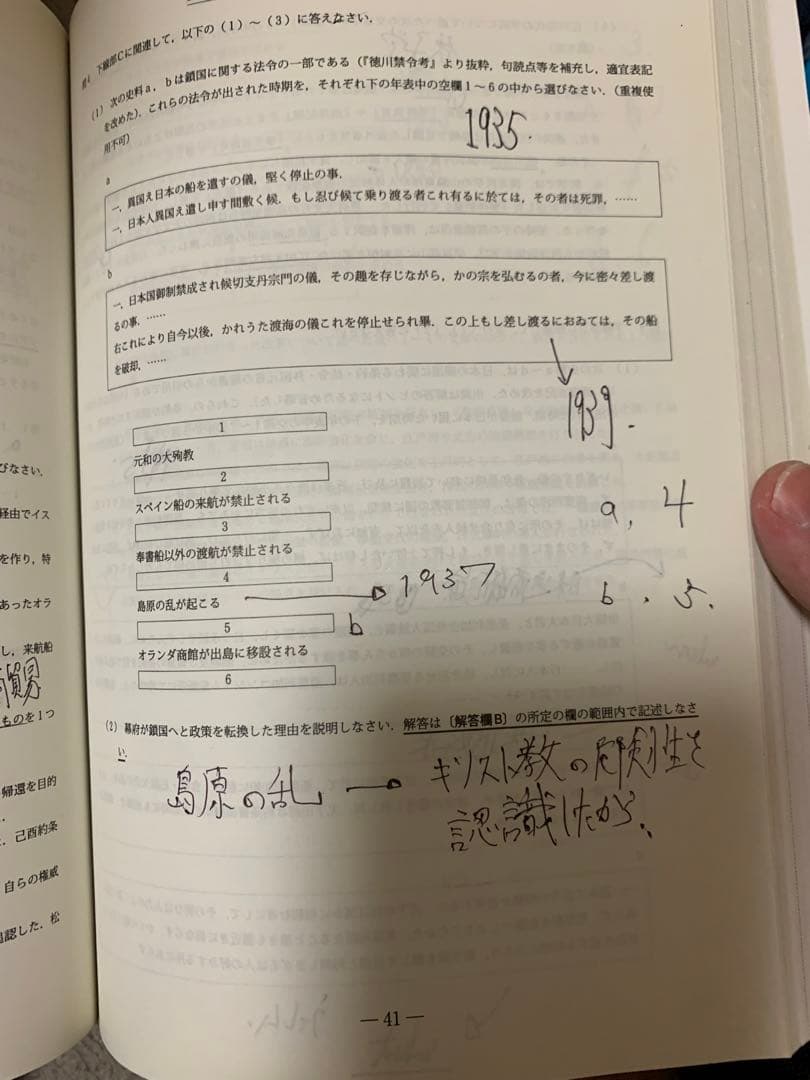 問4. 下線部Cに関連して，以下の（1）～（3）に答えなさい．
（1）次の史料a，bは鎖国に関する法令の一部である（『徳川禁令考』より抜粋，句読点等を補充し，適宜表記
を改めた）．これらの法令が出された時期を，それぞれ下の年表中の空欄1～6の中から選びなさい．（重複使
用不可）
1935.
a
一，異国え日本の船を遣すの儀，堅く停止の事．
一，日本人異国え遣し申す間敷く候．もし忍び候て乗り渡る者これ有るに於ては，その者は死罪，……
b
一，日本国御制禁成され候切支丹宗門の儀，その趣を存じながら，かの宗を弘むるの者，今に密々差し渡
るの事．……
右これにより自今以後，かれうた渡海の儀これを停止せられ畢．この上もし差し渡るにおゐては，その船
を破却，……
1939.
1
元和の大殉教
2
スペイン船の来航が禁止される
3
奉書船以外の渡航が禁止される
4
島原の乱が起こる → 1937
5 b
オランダ商館が出島に移設される
6
a, 4
b. 5.
（2）幕府が鎖国へと政策を転換した理由を説明しなさい．解答は〔解答欄B〕の所定の欄の範囲内で記述しなさ
い．
島原の乱 → キリスト教の 性を
認識したから、
— 41 —
びなさい．
経由でイス
を作り，特
あったオラ
し，来航船
貿易
ものを1つ
帰還を目的
己酉約条
自らの権威
認した．松